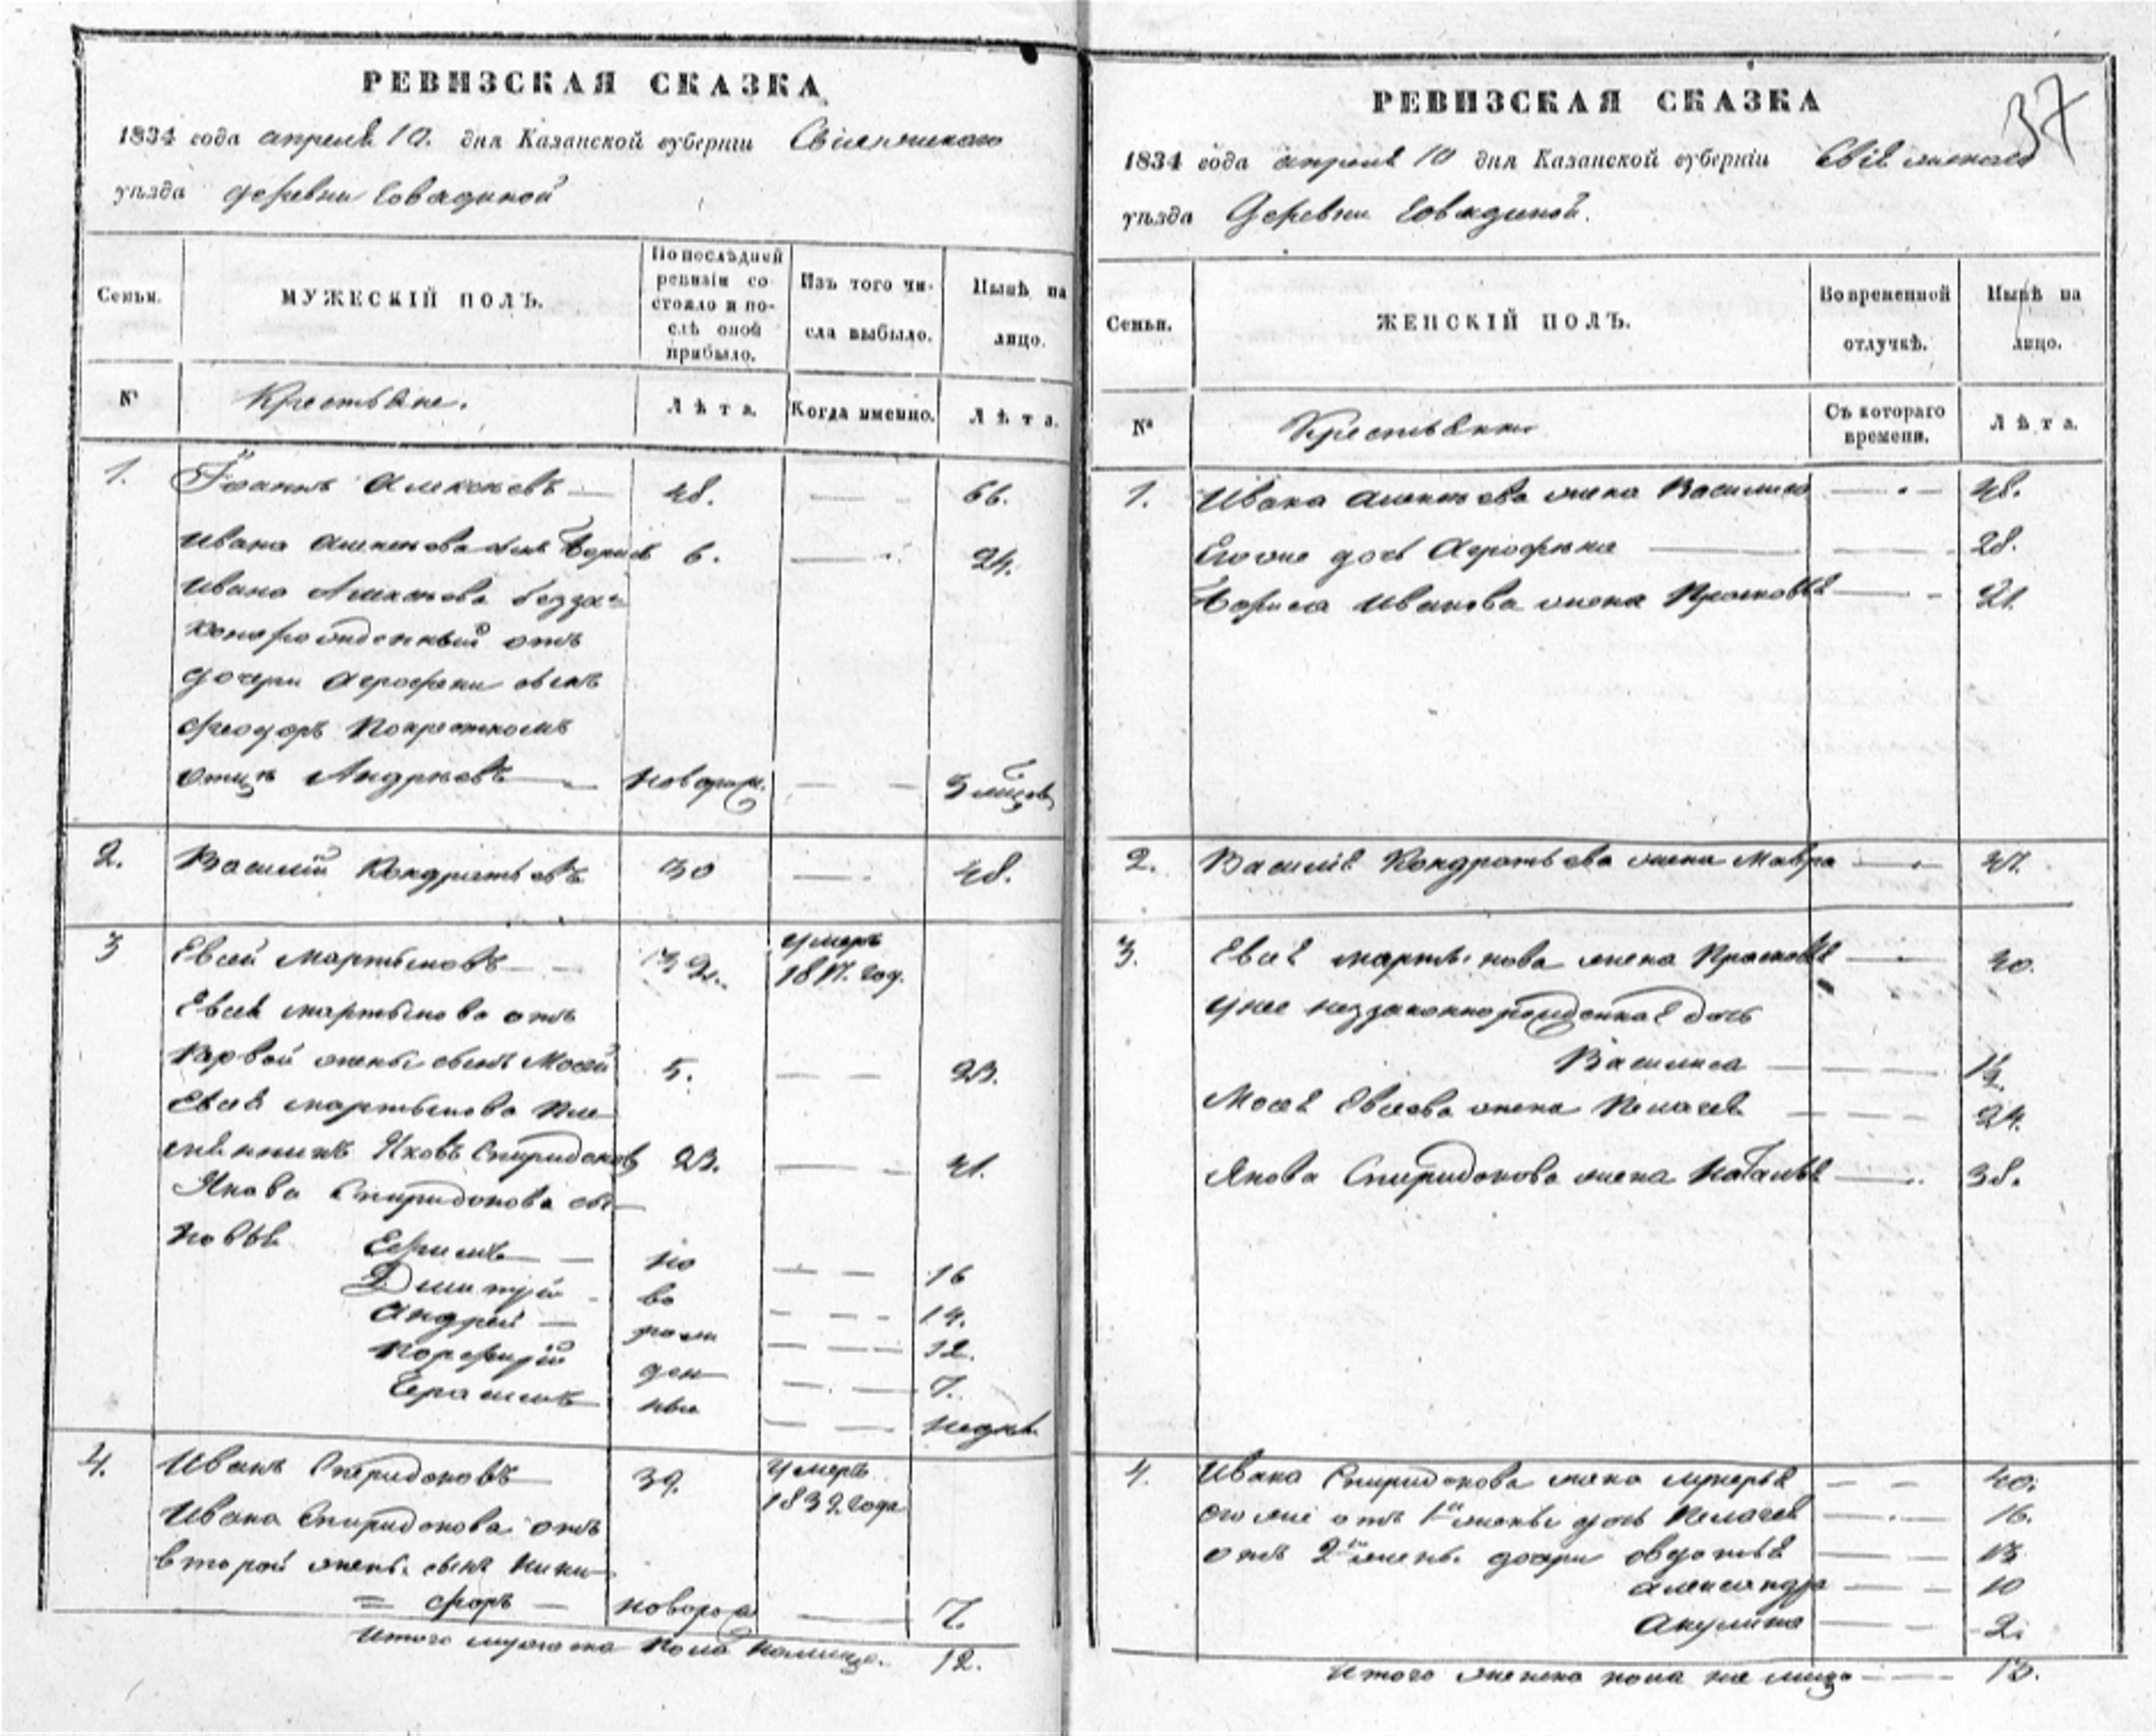 РЕВИЗСКАЯ СКАЗКА
1834 года апреля 10. дня Казанской губерніи Свіяжскаго
уѣзда деревни Совадиной
Семьи.
МУЖЕСКІЙ ПОЛЪ.
По послѣдней
ревизіи со-
стояло и по-
слѣ оной
прибыло.
Изъ того чи-
сла выбыло.
Нынѣ на
лицо.
№
Крестьяне.
Лѣта.
Когда именно.
Лѣта.
1. Іоаннъ Алексѣевъ 48. 66.
Ивана Алексѣева сынъ Борисъ 6. 24.
Ивана Алексѣева безза=
коннорожденный отъ
дочери Агрофѣны сынъ
Феодоръ по крестномъ
отцѣ Андрѣевъ новорож. 3 мѣсяц
2. Василій Кондратьевъ 30 48.
3 Евсей Мартыновъ 32. умеръ
1817. год.
Евсея Мартынова отъ
первой жены сынъ Мосей 5. 23.
Евсея Мартынова пле
мянникъ Яковъ Спиридоновъ 23. 41.
Якова Спиридонова сы
новья Ефимъ но 16
Дмитрій во 14.
Андрей рож 12.
Порфирій ден 7.
Герасимъ ные недѣл.
4. Иванъ Спиридоновъ 39. умеръ
1832. года
Ивана Спиридонова отъ
второй жены сынъ Ники
= форъ новорож 7.
Итого мужеска пола налицо. 12.
37
РЕВИЗСКАЯ СКАЗКА
1834 года апреля 10 дня Казанской губерніи Свіяжскаго
уѣзда Деревни Совадиной.
Семьи.
ЖЕНСКІЙ ПОЛЪ.
Во временной
отлучкѣ.
Нынѣ на
лицо.
№
Крестьянки
Съ котораго
времени.
Лѣта.
1. Ивана Алексѣева жена Василиса 48.
Его же дочь Агрофѣна 28.
Бориса Иванова жена Прасковья 21.
2. Василія Кондратьева жена Мавра 47.
3. Евсея Мартынова жена Прасковья 40.
у нее незаконнорожденная дочь
Василиса 1½
Мосея Евсеева жена Пелагея 24.
Якова Спиридонова жена Наталья 38.
4. Ивана Спиридонова жена Лукерья 40.
его же отъ 1й жены дочь Пелагея 16.
отъ 2й жены дочери Овдотья 13
Александра 10
Акулина 2.
Итого женска пола на лицо 13.